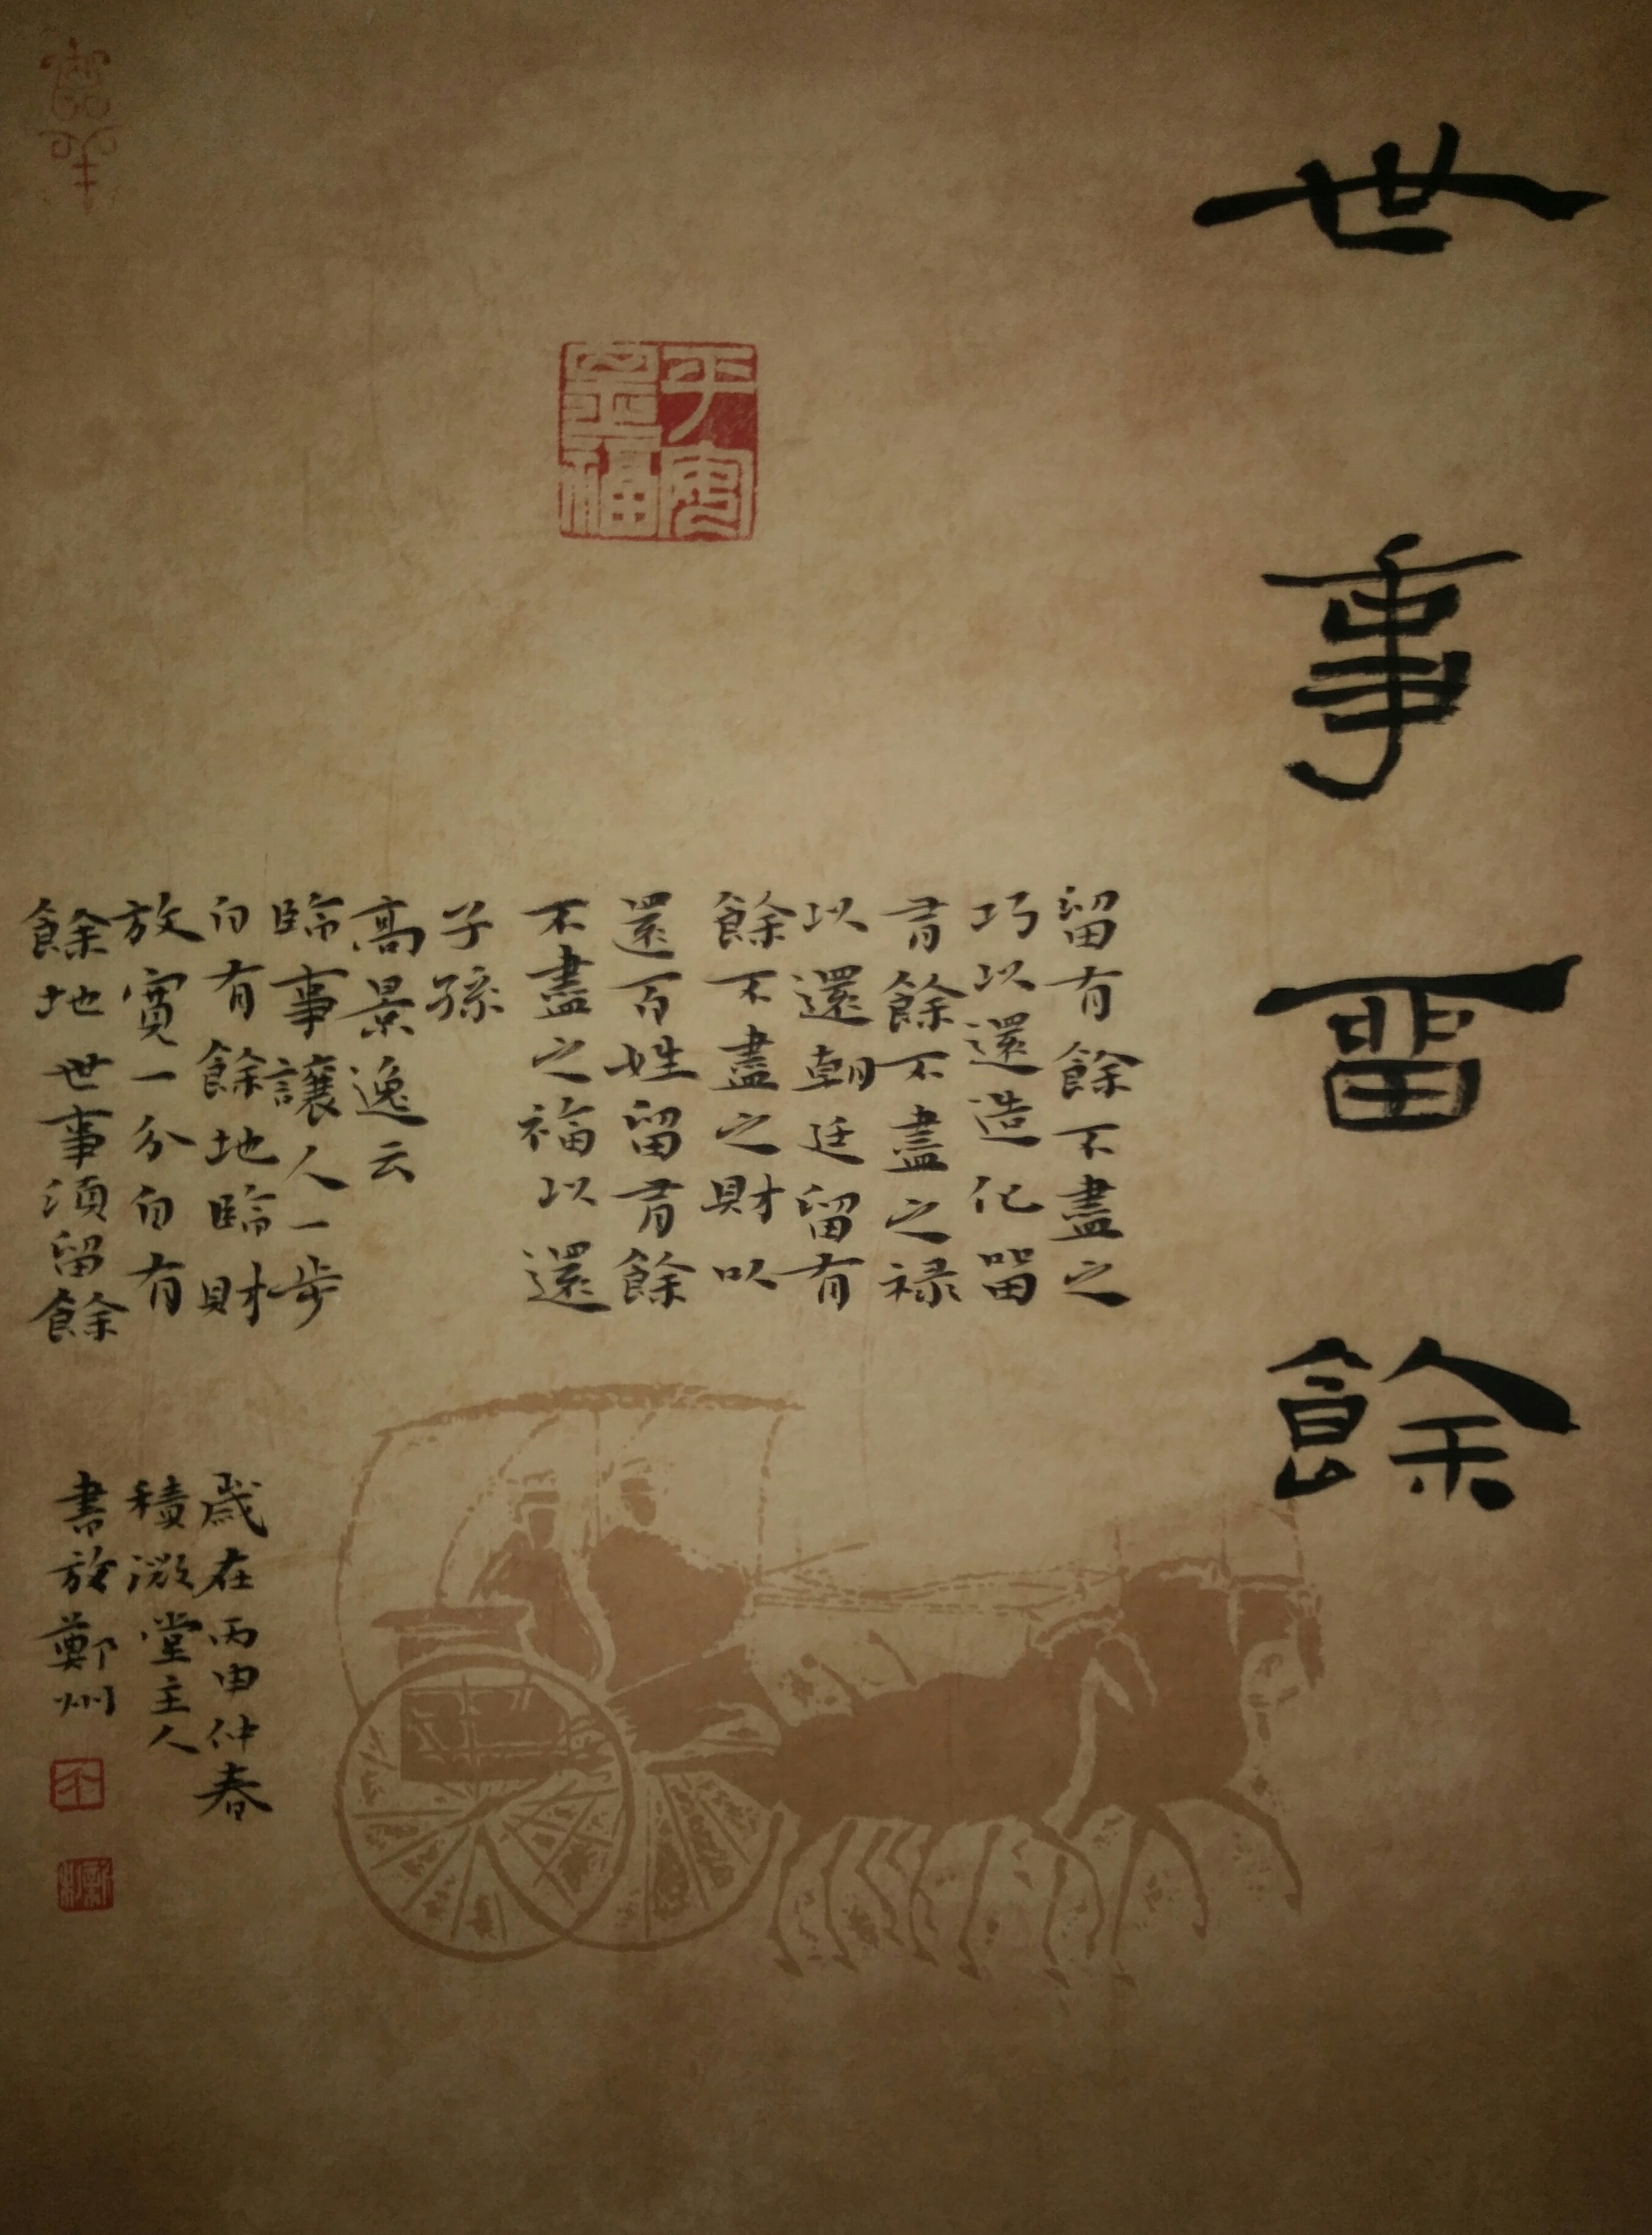 世事畱餘
留有餘不盡之
巧以還造化留
有餘不盡之禄
以還朝廷留有
餘不盡之財以
還百姓留有餘
不盡之福以還
子孫
高景逸云
臨事讓人一步
自有餘地臨財
放寬一分自有
餘地世事須留餘
歲在丙申仲春
積微堂主人
書於鄭州
平安
皇福